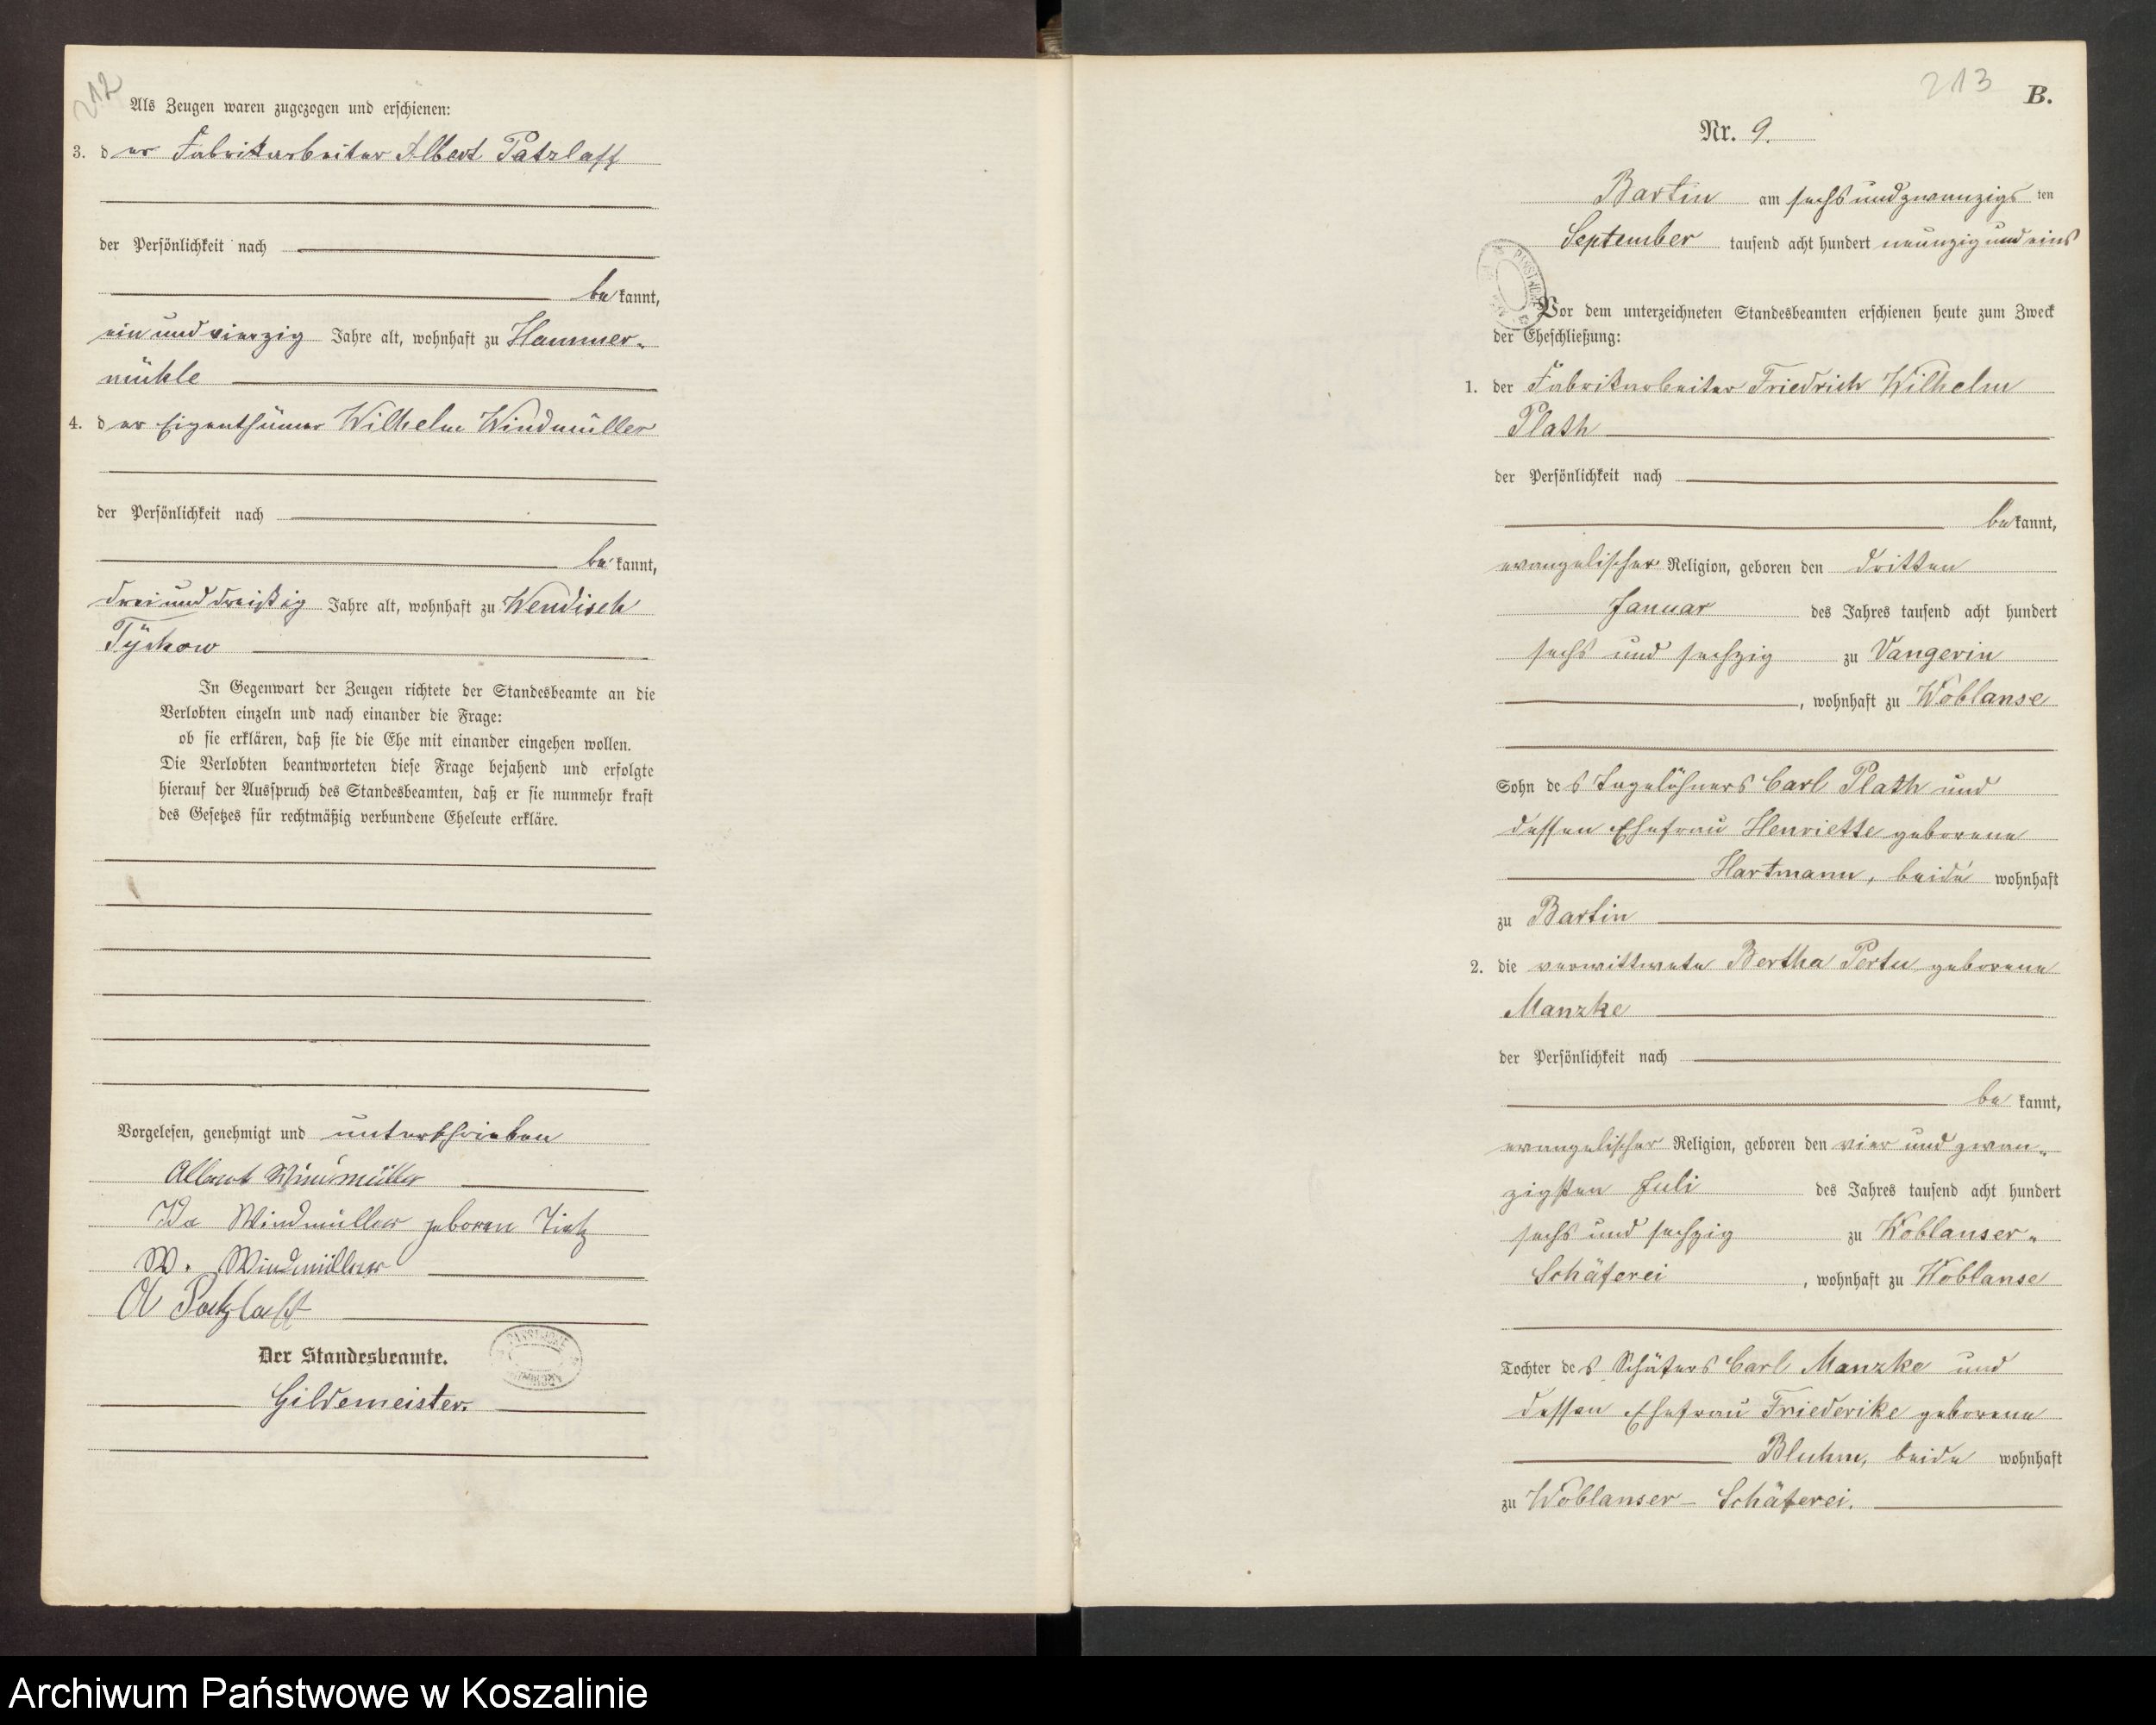 212
Als Zeugen waren zugezogen und erschienen:
3. der Fabrikarbeiter Albert Patzlaff
der Persönlichkeit nach
bekannt,
ein und vierzig Jahre alt, wohnhaft zu Hammer-
mühle
4. der Eigenthümer Wilhelm Windmüller
der Persönlichkeit nach
bekannt,
drei und dreißig Jahre alt, wohnhaft zu Wendisch
Tÿchow
In Gegenwart der Zeugen richtete der Standesbeamte an die
Verlobten einzeln und nach einander die Frage:
ob sie erklären, daß sie die Ehe mit einander eingehen wollen.
Die Verlobten beantworteten diese Frage bejahend und erfolgte
hierauf der Ausspruch des Standesbeamten, daß er sie nunmehr kraft
des Gesetzes für rechtmäßig verbundene Eheleute erkläre.
Vorgelesen, genehmigt und unterschrieben
Albert Windmüller
Ida Windmüller geboren Tietz
W. Windmüller
A Patzlaff
Der Standesbeamte.
Gildemeister.
213
B.
Nr. 9.
Bartin am sechs und zwanzigsten
September tausend acht hundert neunzig und eins
Vor dem unterzeichneten Standesbeamten erschienen heute zum Zweck
der Eheschließung:
1. der Fabrikarbeiter Friedrich Wilhelm
Plath
der Persönlichkeit nach
bekannt,
evangelischer Religion, geboren den dritten
Januar des Jahres tausend acht hundert
sechs und sechzig zu Vangerin
, wohnhaft zu Woblanse
Sohn des Tagelöhners Carl Plath und
dessen Ehefrau Henriette geborene
Hartmann, beide wohnhaft
zu Bartin
2. die verwittwete Bertha Pertu geborene
Manzke
der Persönlichkeit nach
bekannt,
evangelischer Religion, geboren den vier und zwan-
zigsten Juli des Jahres tausend acht hundert
sechs und sechzig zu Woblanser-
Schäferei, wohnhaft zu Woblanse
Tochter des Schäfers Carl Manzke und
dessen Ehefrau Friederike geborene
Bluhm, beide wohnhaft
zu Woblanser-Schäferei.
Archiwum Państwowe w Koszalinie